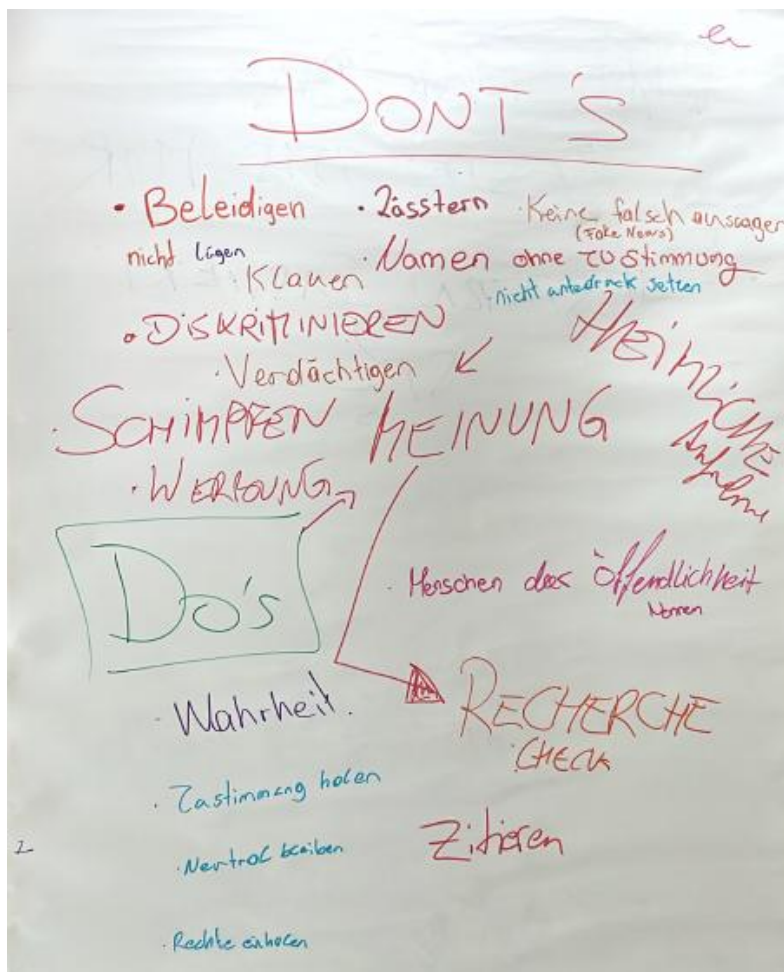 DONT'S
· Beleidigen
· Lässtern
· Keine falsch aussagen
(Fake News)
nicht lügen
· Klauen
· Namen ohne ZUStimmung
· nicht unterdruck setzen
· DiSKRiMiNiEREN
· Verdächtigen
HEiMLiCHE
Aufnahme
· SCHiMPFEN
MEiNUNG
· WERBUNG
Do's
· Menschen des öffendlichkeit
Namen
· Wahrheit.
RECHERCHE
· CHECK
· Zustimmung holen
Zitieren
· Neutral bleiben
· Rechte einholen